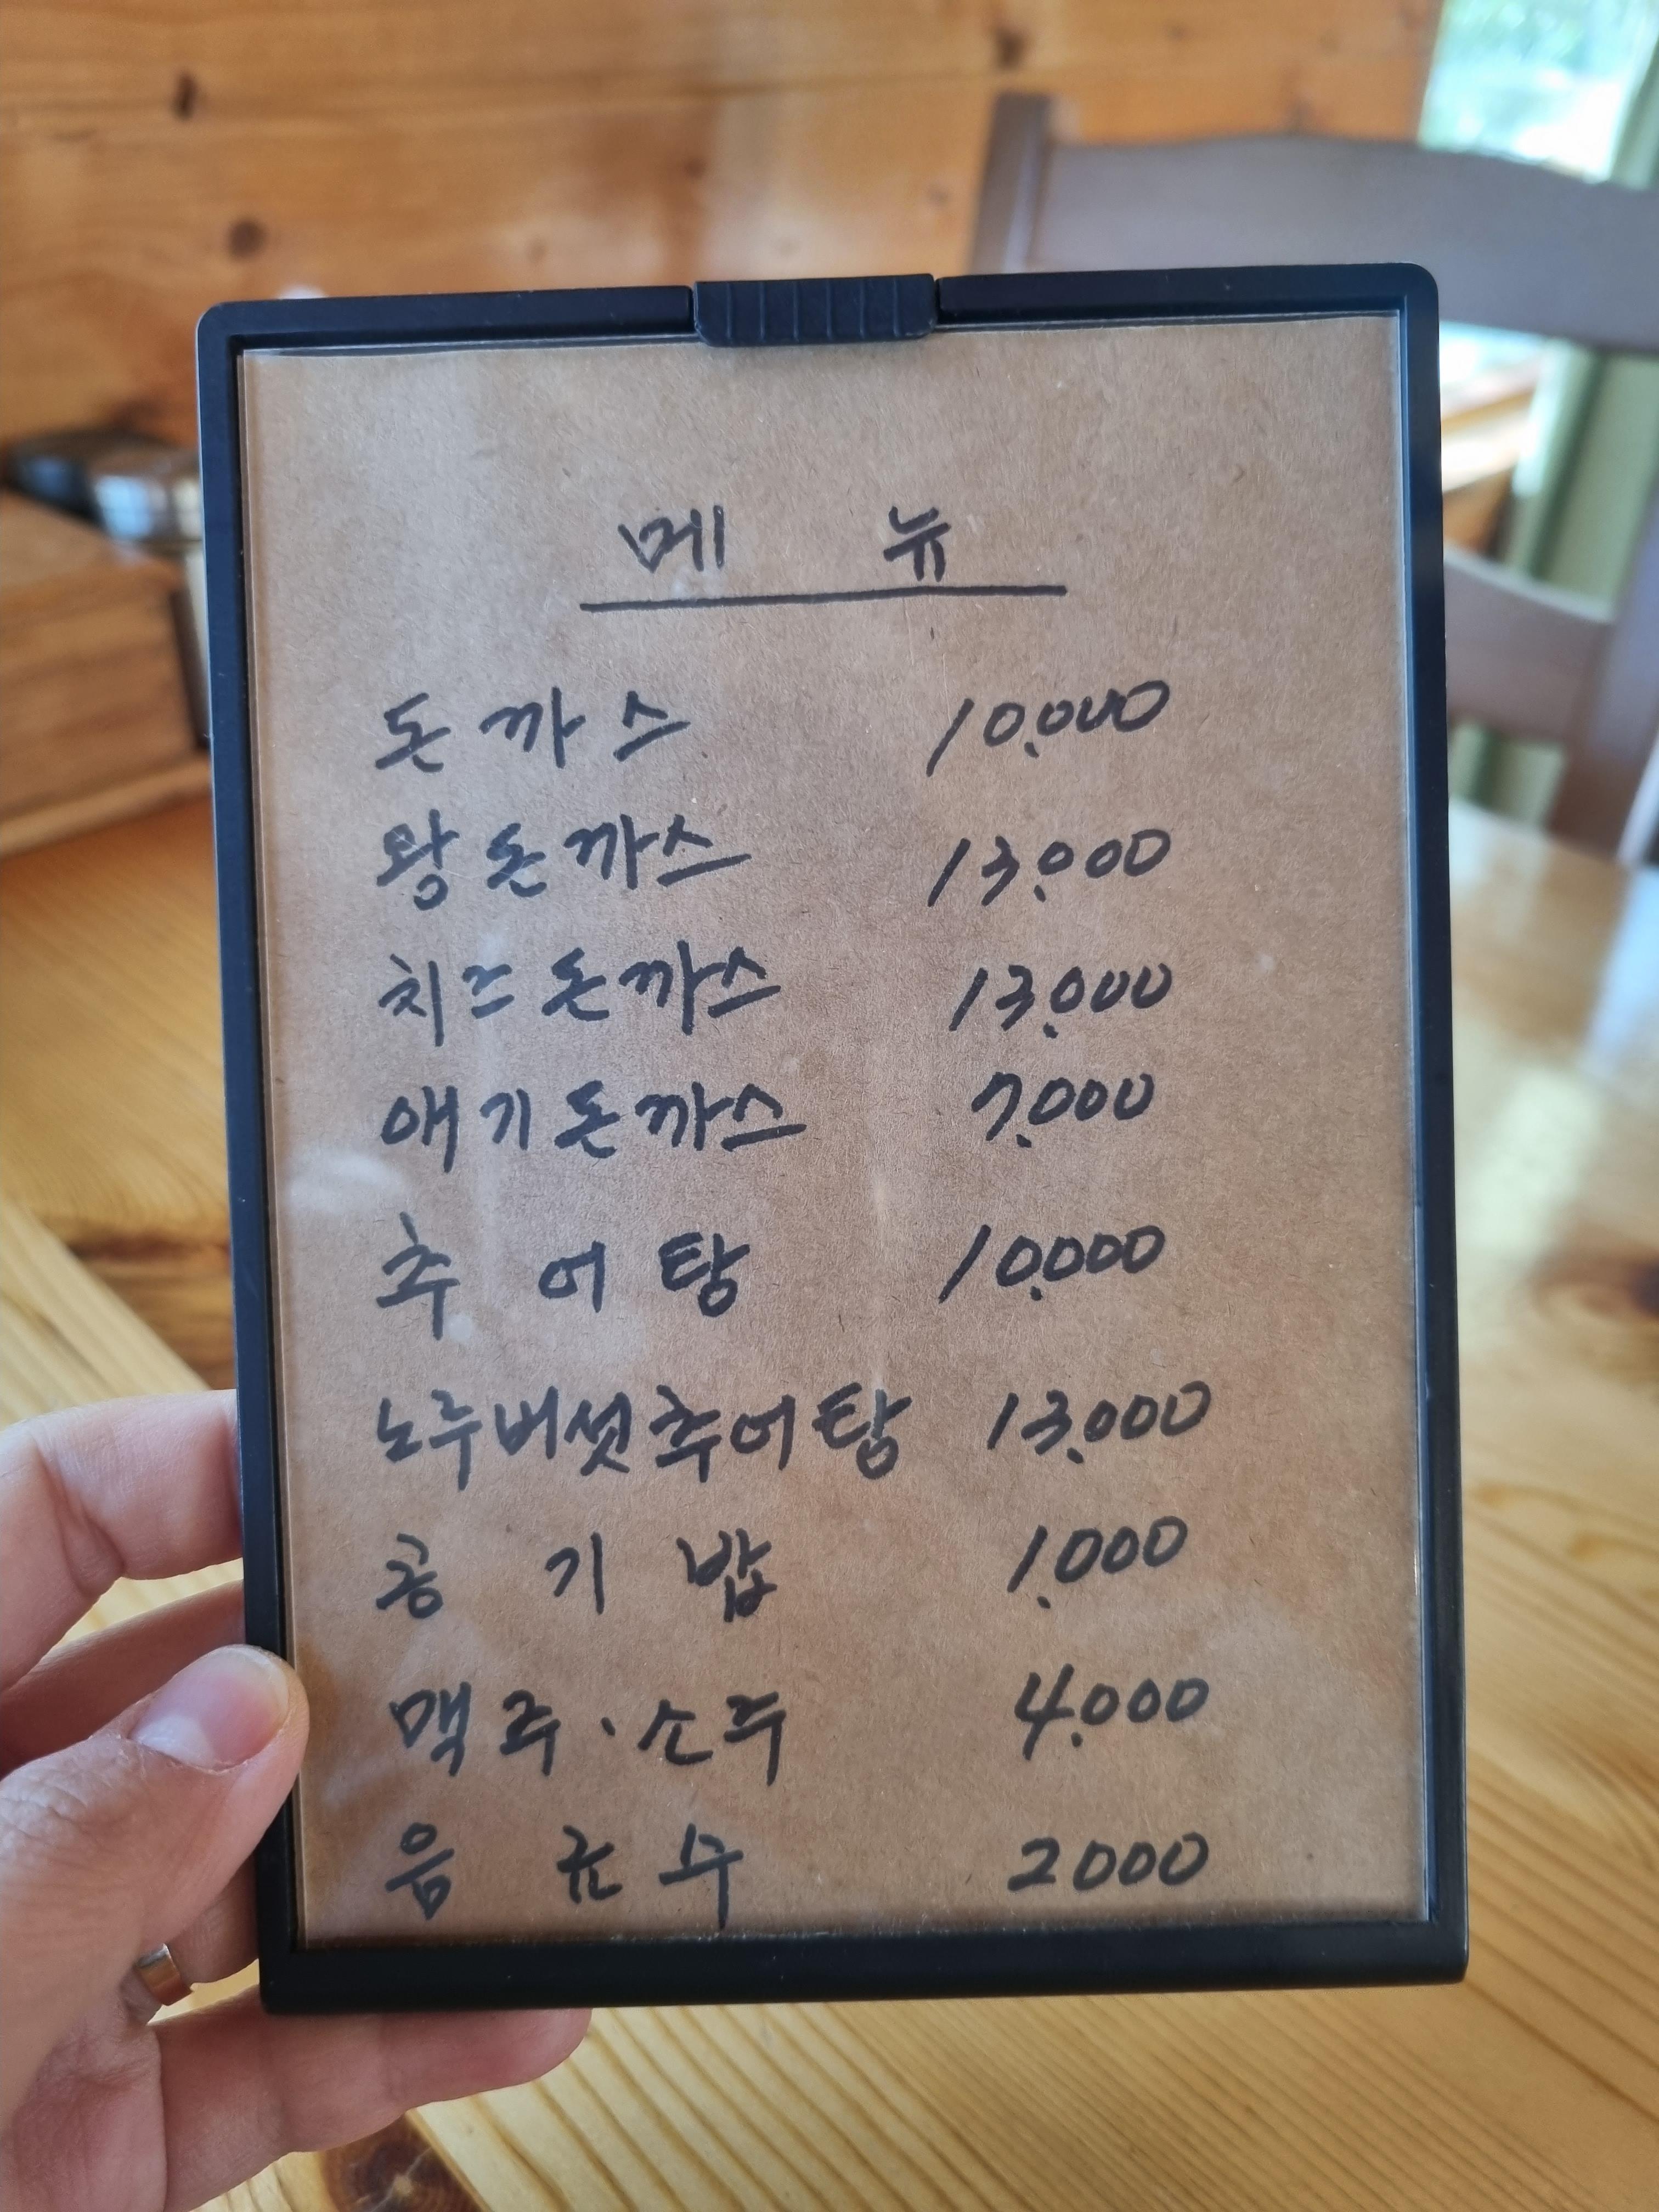 메 뉴
돈까스 10.000
왕돈까스 13.000
치즈돈까스 13.000
애기돈까스 7.000
추어탕 10.000
노루버섯추어탕 13.000
공기밥 1.000
맥주·소주 4.000
음료수 2000